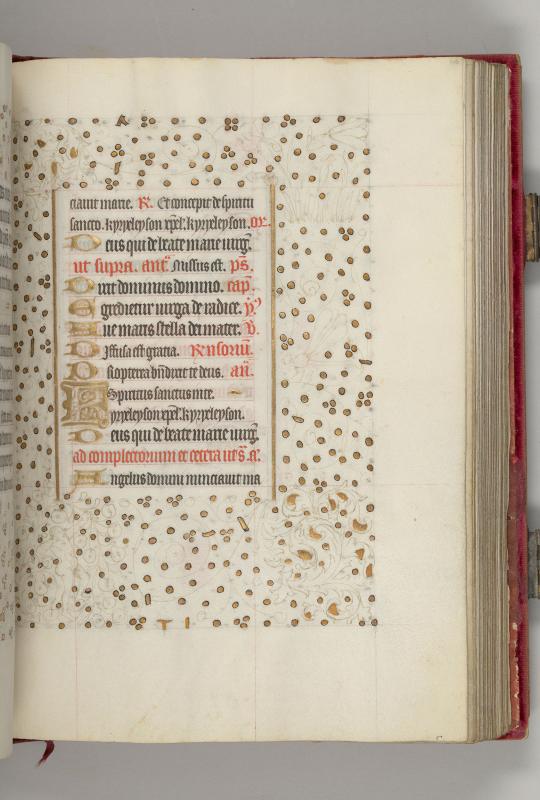 ciauit marie. R. Et concepit de spiritu
sancto. kyryeleyson. xpel. kyryeleyson. or.
Deus qui de beate marie uirg.
ut supra. ant. Missus est. ps.
Dixit dominus domino. cap.
Egredietur uirga de radice. ymp
Aue maris stella dei mater. V.
Diffusa est gratia.
Benedicite te deus. an.
Spiritus sanctus in te.
kyryeleyson. xpel. kyryeleyson.
Deus qui de beate marie uirg.
ad complectorium et cetera ut s. a.
Angelus domini nunciauit ma